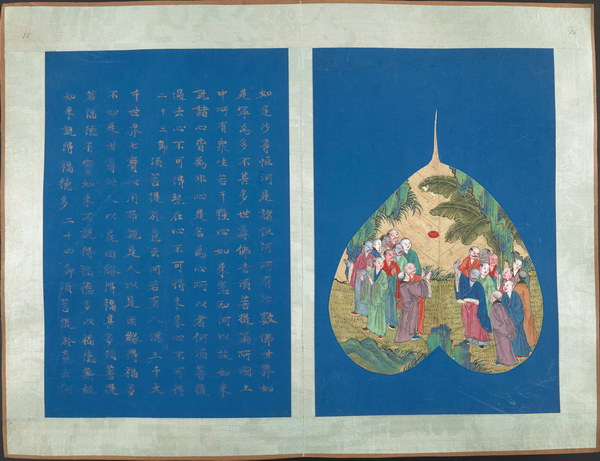 如是沙等恒河是諸恒河所有沙數佛世界如
是寧為多不甚多世尊佛告須菩提爾所國土
中所有眾生若干種心如來悉知何以故如來
說諸心皆為非心是名為心所以者何須菩提
過去心不可得現在心不可得未來心不可得
二十三節須菩提於意云何若有滿三千大
千世界七寶以用布施是人以是因緣得福多
不如是世尊此人以是因緣得福甚多須菩提
若福德有實如來不說得福德多以福德無故
如來說得福德多二十四節須菩提於意云何